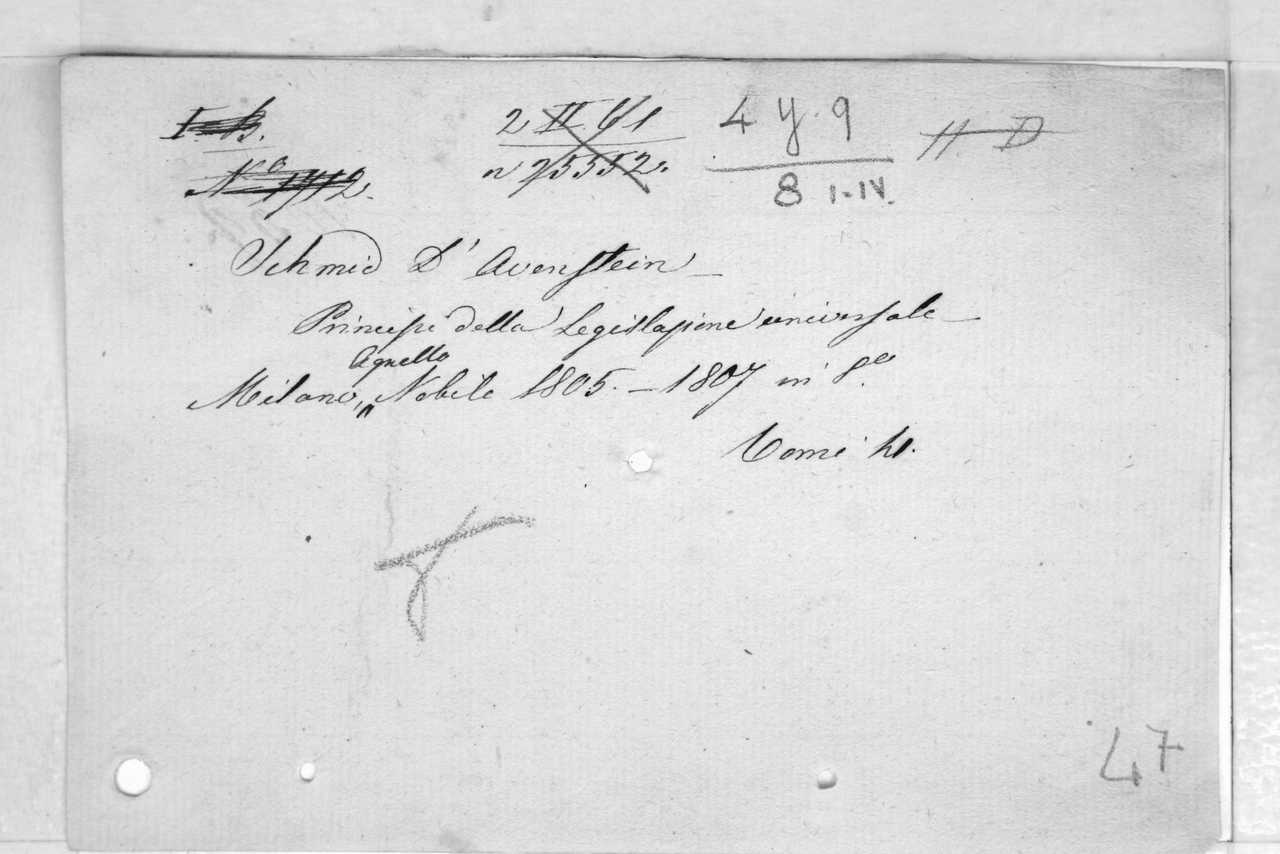 I B.
N.º 1712.
2 II. 61
n 75552.
4 y. 9
8 I-IV.
H D
Schmid D' Avenstein
Principi della Legislazione universale
Agnello
Milano, „ Nobile 1805. – 1807 in 8.º
Tomi 4.
47